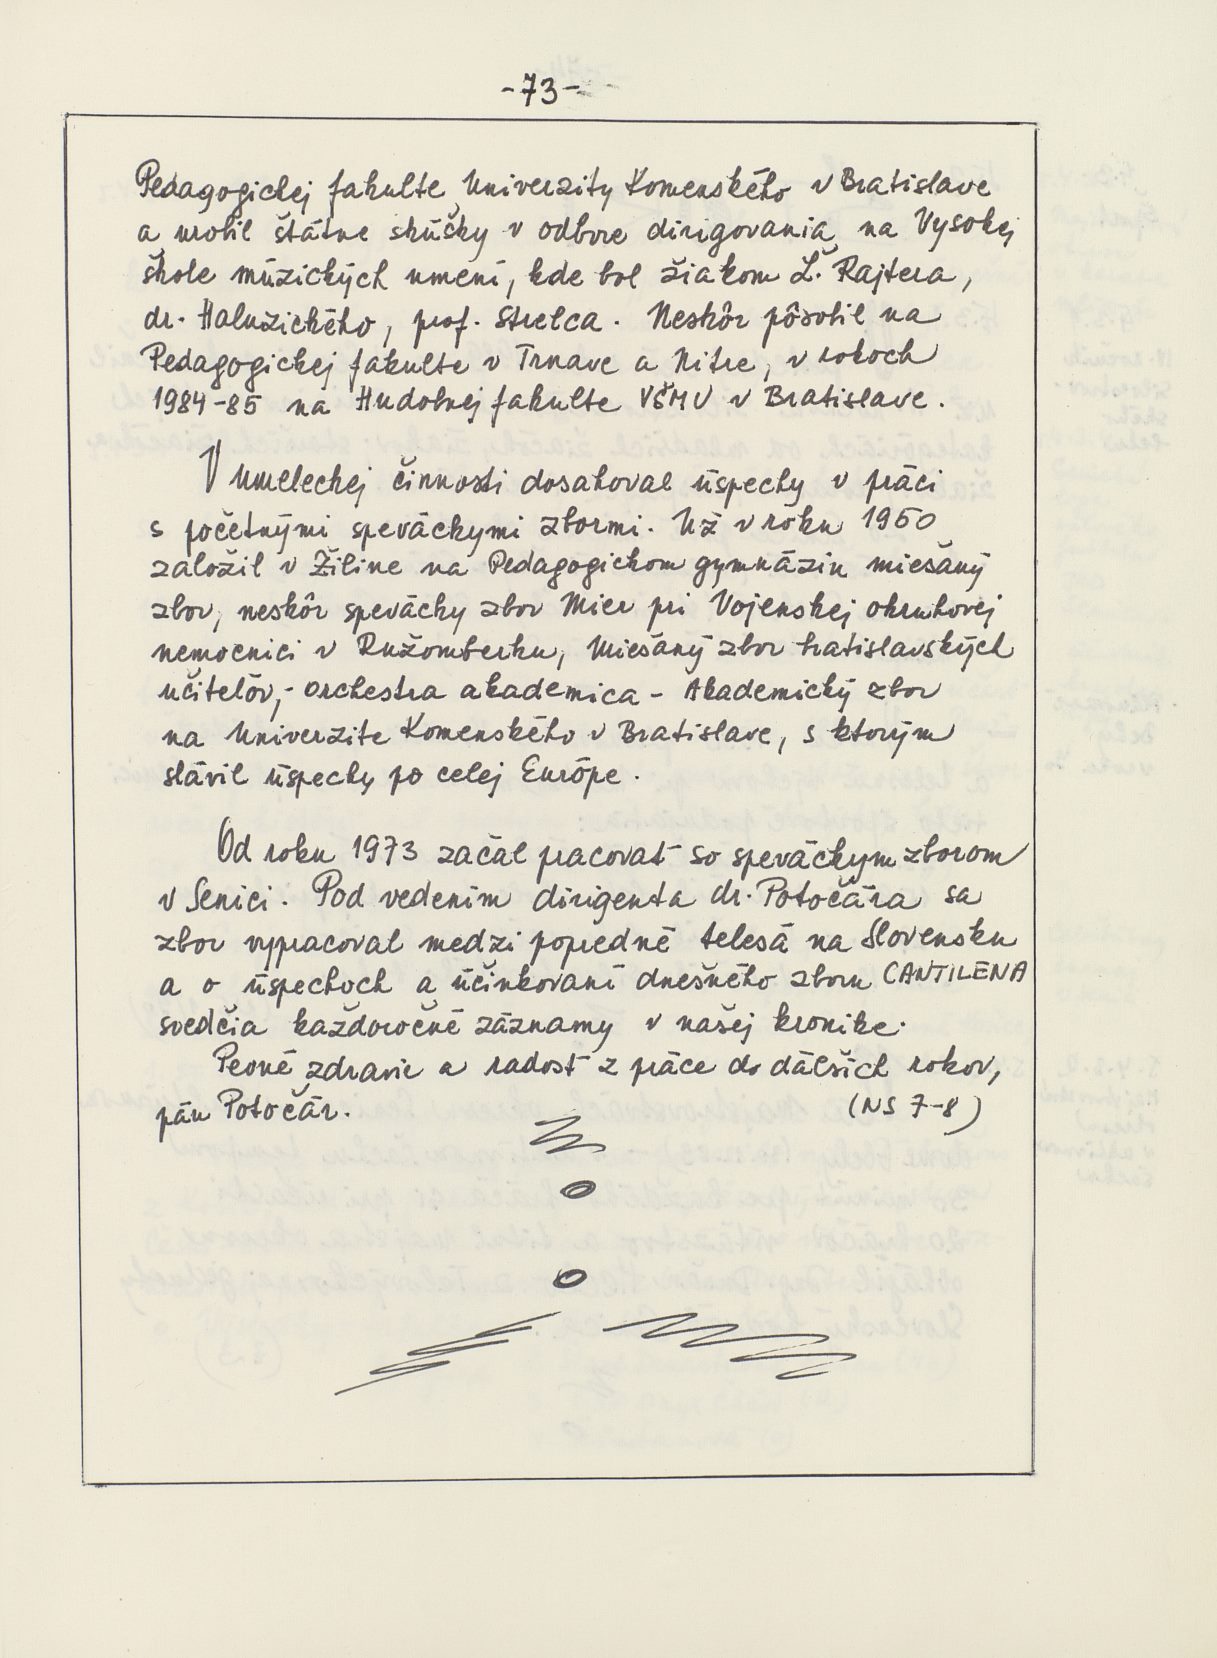 -73-
Pedagogickej fakulte Univerzity Komenského v Bratislave
a urobil štátne skúšky v odbore dirigovania na Vysokej
škole múzických umení, kde bol žiakom Ľ. Rajtera,
dr. Haluzického, prof. Strelca. Neskôr pôsobil na
Pedagogickej fakulte v Trnave a Nitre, v rokoch
1984-85 na Hudobnej fakulte VŠMU v Bratislave.
V umeleckej činnosti dosahoval úspechy v práci
s početnými speváckymi zbormi. Už v roku 1950
založil v Žiline na Pedagogickom gymnáziu miešaný
zbor, neskôr spevácky zbor Mier pri Vojenskej okruhovej
nemocnici v Ružomberku, Miešaný zbor bratislavských
učiteľov, - orchestra akademica - Akademický zbor
na Univerzite Komenského v Bratislave, s ktorým
slávil úspechy po celej Európe.
Od roku 1973 začal pracovať so speváckym zborom
v Senici. Pod vedením dirigenta dr. Potočára sa
zbor vypracoval medzi popredné telesá na Slovensku
a o úspechoch a účinkovaní dnešného zboru CANTILÉNA
svedčia každoročné záznamy v našej kronike.
Pevné zdravie a radosť z práce do ďalších rokov,
pán Potočár. (NS 7-8)